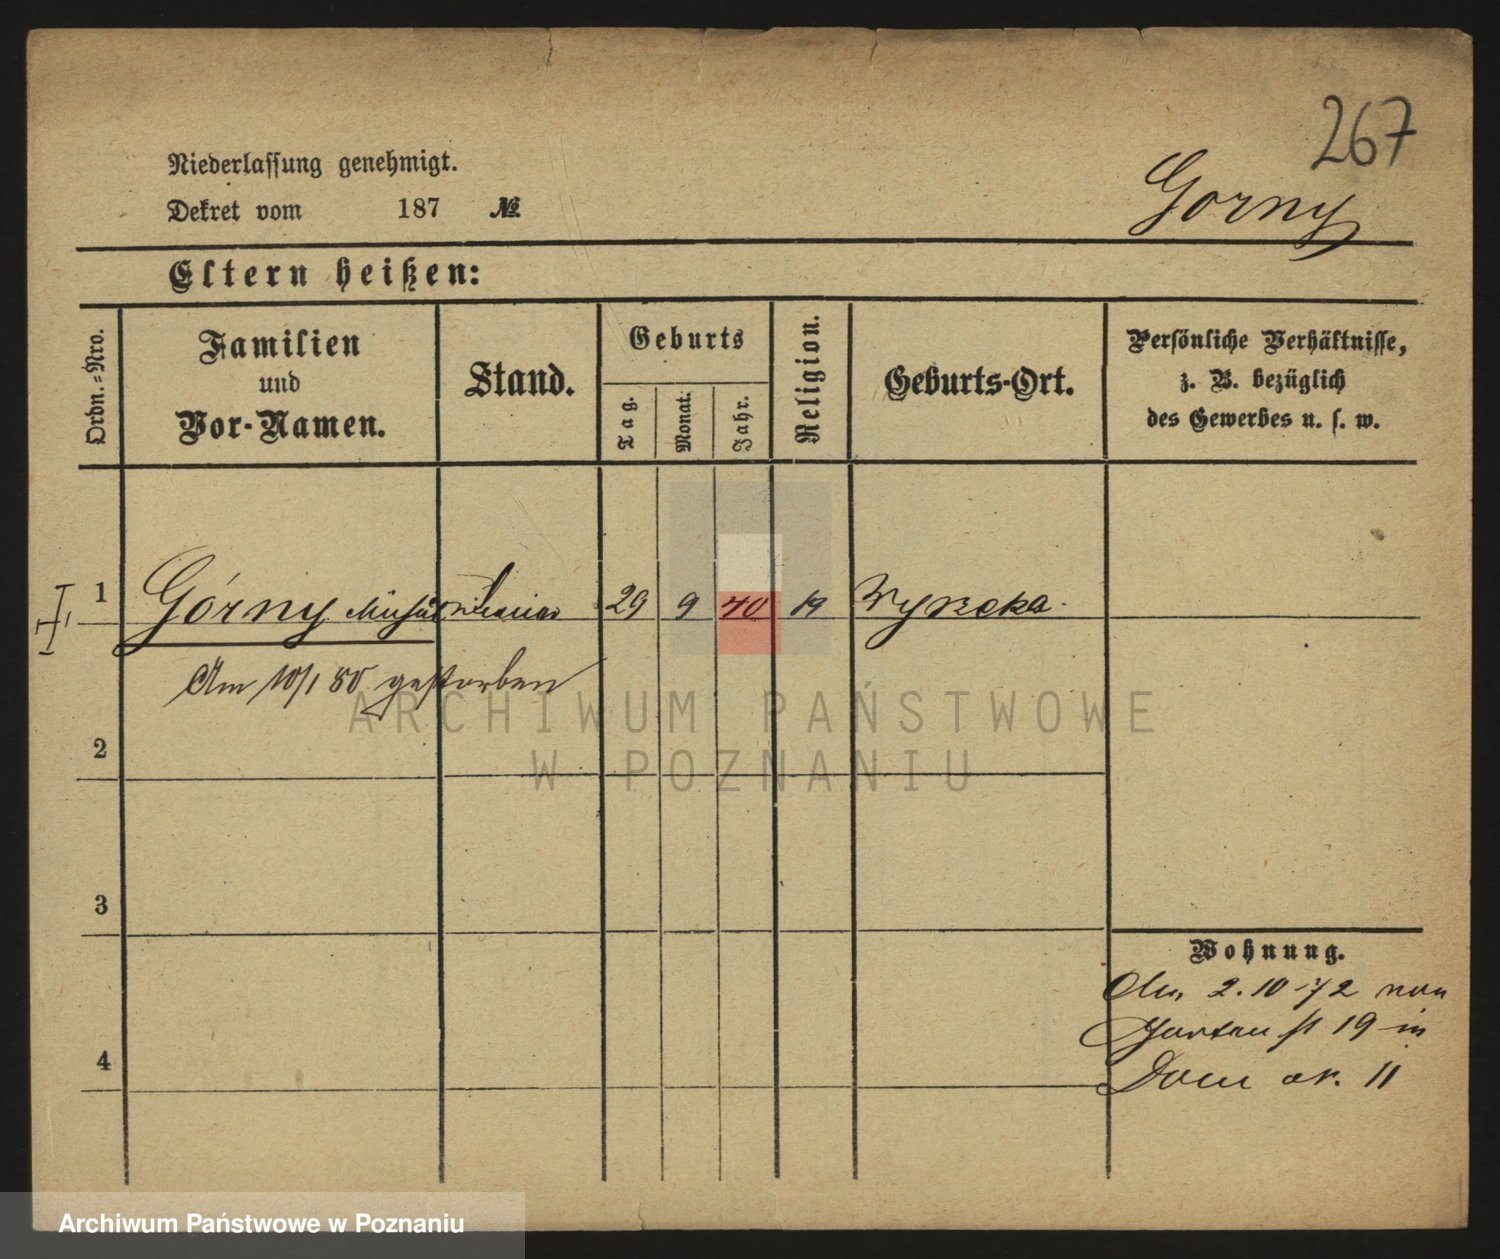 267
Niederlassung genehmigt.
Gorny
Dekret vom 187 №
Eltern heißen:
Ordn.=Nro.
Familien und Vor-Namen.
Stand.
Geburts
Tag.
Monat.
Jahr.
Religion.
Geburts-Ort.
Persönliche Verhältnisse,
z. B. bezüglich
des Gewerbes u. s. w.
1 Górny 29 9 40
Am 10/1 80 gestorben
ARCHIWUM PAŃSTWOWE
W POZNANIU
2
3
4
Wohnung.
2.10 72
Garten st 19 in
11
Archiwum Państwowe w Poznaniu